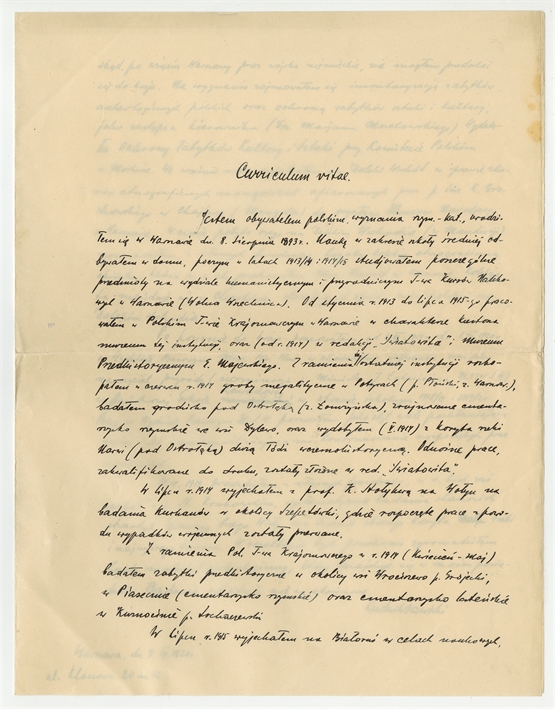 Curriculum vitae.
Jestem obywatelem polskim, wyznania rzym.-kat., urodzi-
łem się w Warszawie dn. 8. sierpnia 1893 r. Naukę w zakresie szkoły średniej od-
bywałem w domu, poczym w latach 1913/14 i 1914/15 studjowałem poszczególne
przedmioty na wydziale humanistycznym i przyrodniczym T-wa Kursów Nauko-
wych w Warszawie (Wolna Wszechnica). Od stycznia r. 1913 do lipca 1915 praco-
wałem w Polskim T-wie Krajoznawczym w Warszawie w charakterze kustosza
muzeum tej instytucji, oraz (od r. 1914) w redakcji "Światowita" i Muzeum
Przedhistorycznym E. Majewskiego. Z ramienia ostatniej instytucji rozko-
pałem w czerwcu r. 1914 groby megalityczne w (p. Płoński, z. Warszaw.),
badałem grodzisko pod Ostrołęką (z. Łomżyńska), zrujnowane cmenta-
rzysko rzymskie we wsi Dylewo, oraz wydobyłem (V. 1914) z koryta rzeki
Narwi (pod Ostrołęką) dużą łódź wczesnohistoryczną. Odnośne prace,
zakwalifikowane do druku, zostały złożone w red. "Światowita".
W lipcu r. 1914 wyjechałem z prof. K. Stołyhwą na Wołyń na
badania kurhanów w okolicy Szepetówki, gdzie rozpoczęte prace z powo-
du wypadków wojennych zostały przerwane.
Z ramienia Pol. T-wa Krajoznawczego w r. 1914 (kwiecień-maj)
badałem zabytki przedhistoryczne w okolicy wsi Wrociszewo p. Grójecki,
w Piasecznie (cmentarzysko rzymskie) oraz cmentarzysko lateńskie
w p. Sochaczewski
W lipcu r. 1915 wyjechałem na Białoruś w celach naukowych,